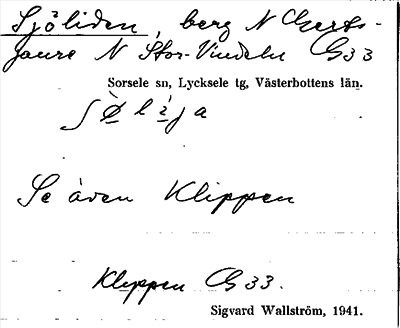 Sjöliden, berg N Gerts-
jaure N Stor-Vindeln G33
Sorsele sn, Lycksele tg, Västerbottens län.
Se även Klippen
Klippen G 33.
Sigvard Wallström, 1941.